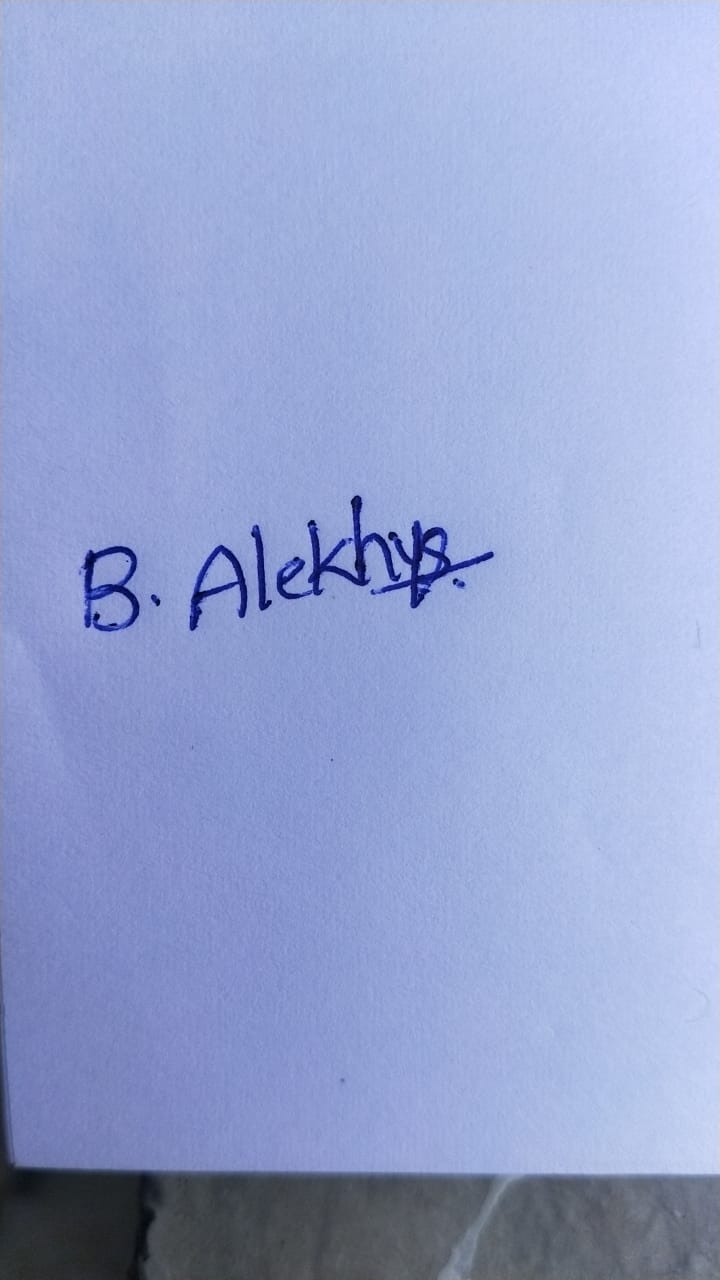 B. Alekhya